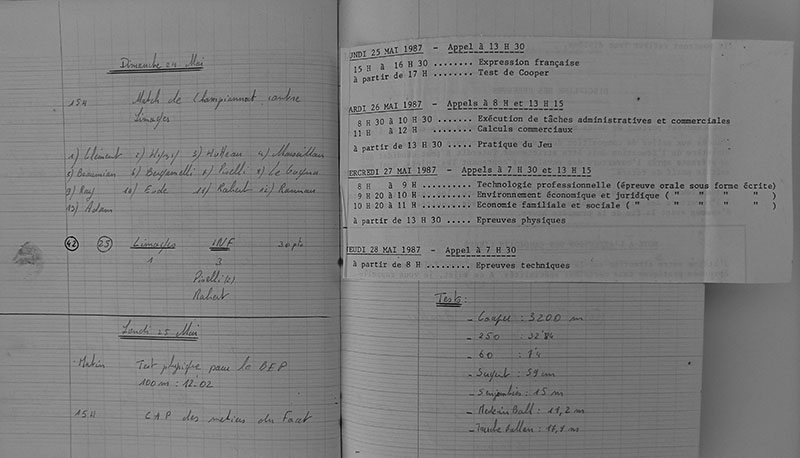 Dimanche 24 Mai
15H Match de Championnat contre
Limoges
1) Clément 2) 3) 4)
5) Beaumian 6) Bergamelli 7) Piselli 8) Le Guyona
9) Ray 10) Eude 11) Rabert 12)
13) Adam
42 25 Limoges INF
1 3
Piselli (2)
Rabert
Lundi 25 Mai
Matin Test physique pour le BEP
100 m : 12"02
15H CAP des métiers du Foot
UNDI 25 MAI 1987 - Appel à 13 H 30
15 H à 16 H 30 ........ Expression française
à partir de 17 H ........ Test de Cooper
ARDI 26 MAI 1987 - Appels à 8 H et 13 H 15
8 H 30 à 10 H 30 ....... Exécution de tâches administratives et commerciales
11 H à 12 H ........ Calculs commerciaux
à partir de 13 H 30 ..... Pratique du Jeu
ERCREDI 27 MAI 1987 - Appels à 7 H 30 et 13 H 15
8 H à 9 H .......... Technologie professionnelle (épreuve orale sous forme écrite)
9 H 20 à 10 H .......... Environnement économique et juridique ( " " " " " )
10 H 20 à 11 H ......... Economie familiale et sociale ( " " " " " )
à partir de 13 H 30 ..... Epreuves physiques
EUDI 28 MAI 1987 - Appel à 7 H 30
à partir de 8 H ......... Epreuves techniques
Tests :
- Cooper : 3200 m
- 250 : 32"84
- 60 :
- Sargent : 59 cm
- : 15 m
- Medecin Ball : 11,2 m
- Touche Ballon : 17,8 m